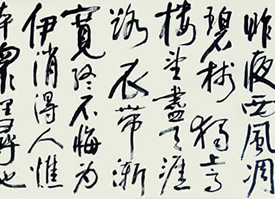 昨夜西風凋
碧樹獨上高
樓望盡天涯
路衣帶漸
寬終不悔為
伊消得人憔
衆里尋他